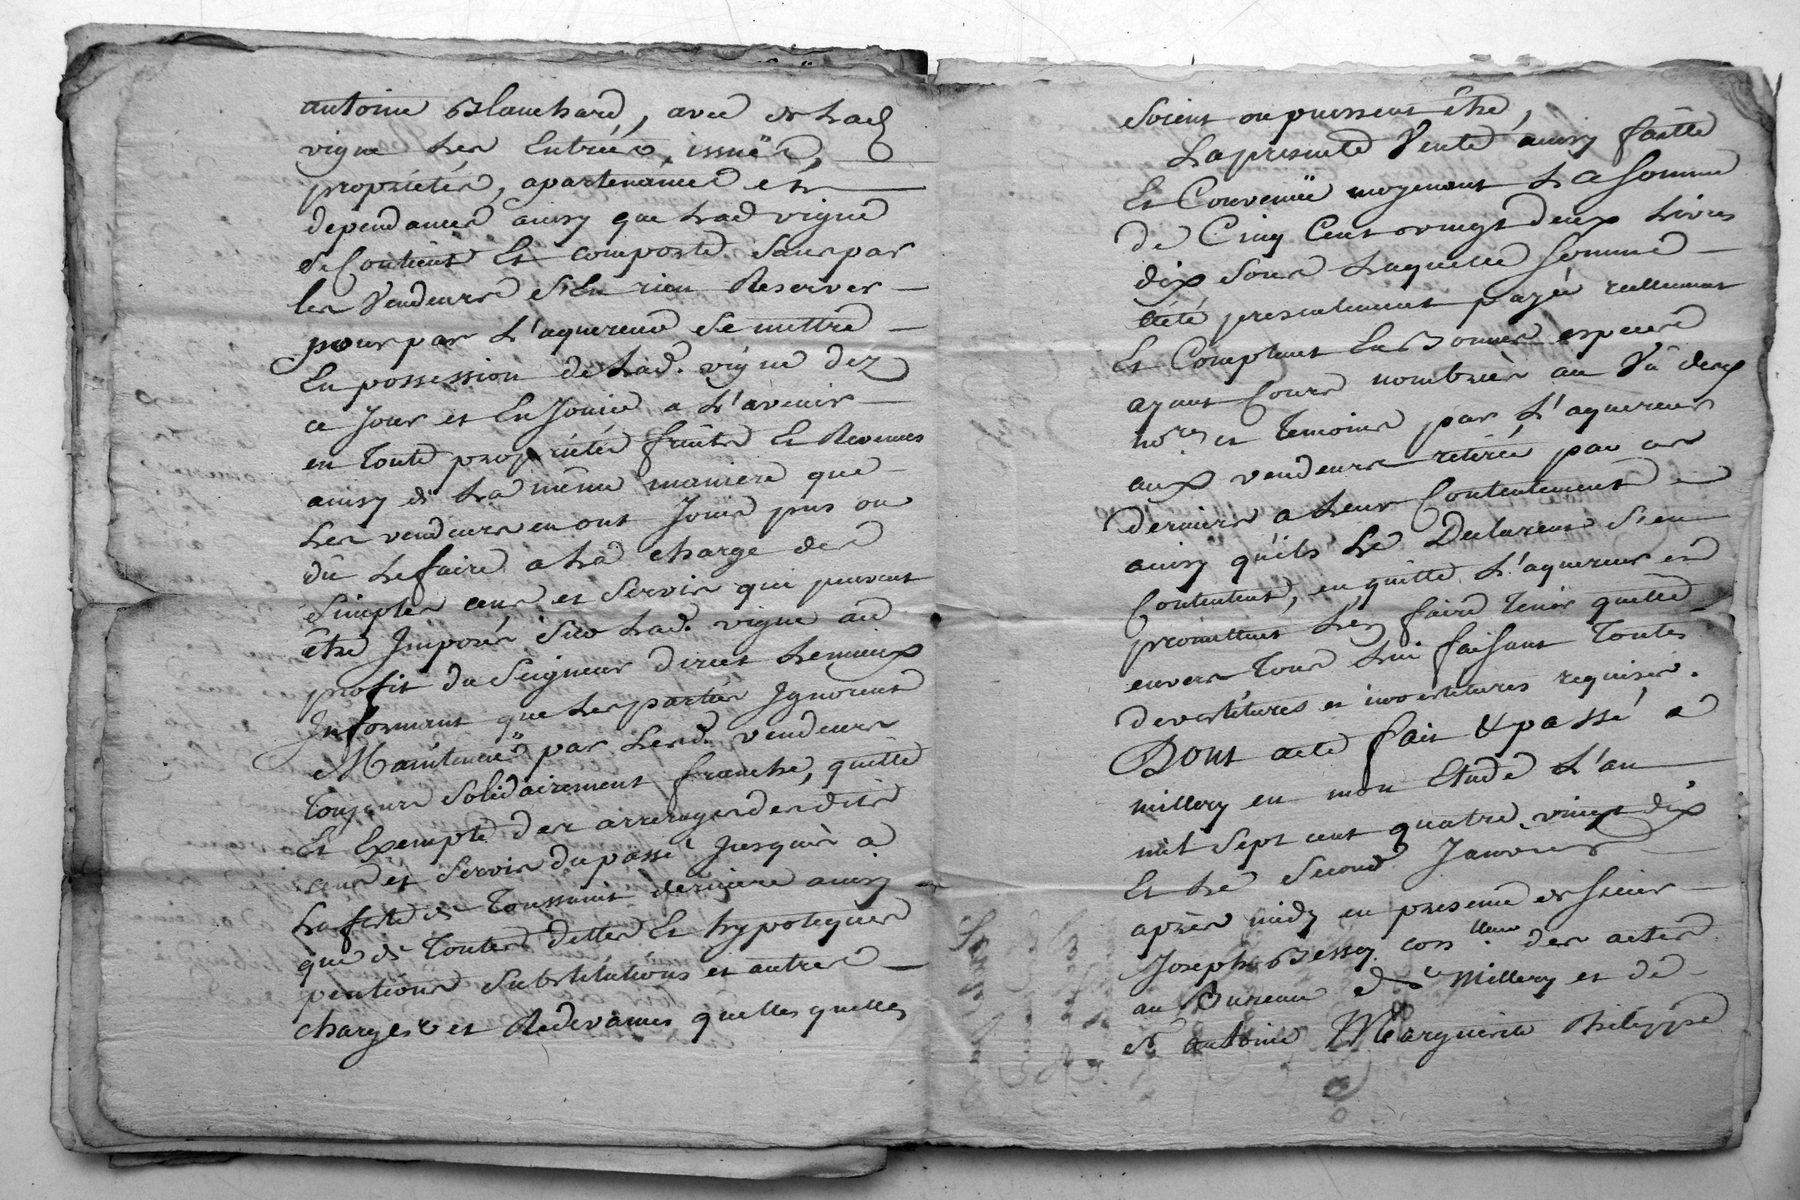 antoine Blanchard, avec de lad
vigne les Entrées, issuës,
proprietés, apartenances et
dependances ainsy que lad vigne
se Contient Et composte Sans par
les Vendeurs s'En rien Reserver
pour par L'aquereur se mettre
En possession de lad. vigne dez
ce Jour et En Jouir a L'avenir
en toute proprieté fruits Et Revenus
ainsy de la même maniere que
Les vendeurs en ont Joui pus ou
dû Le faire a la charge des
Simples cens et servis qui peuvent
être Imposés sur lad. vigne au
profit du Seigneur direct Lemieux
Informant que les parties Ignorent
Maintenuë par lesd. vendeurs
toujours solidairement franche, quitte
Et Exempte des arrerages desdits
cens et servis du passé Jusques à
la fete de Toussaint derniere ainsy
que de toutes dettes Et hypoteques
pentions substitutions et autres
charges et Redevances quelles quelles
soient ou puissent être,
La presente Vente ainsy faitte
Et Convenuë moyenant La Somme
de Cinq Cent vingt deux Livres
dix sous Laquelle Somme
été presentement payée reellement
Et Comptant En Bonnes especes
ayant Cours nombrées au Vû desd
no.res et temoins par L'aquereur
aux vendeurs retirée par ces
derniers a leur Contentement
ainsy qu'ils Le Declarent s'en
Contentent, en quitte L'aquereur et
promettent L'en faire tenir quitte
envers tous lui faisant toutes
devestitures et investitures requises.
Dont acte fait & passé a
millery en mon Etude L'an
mil sept cent quatre vingt dix
Et Le Second Janvier
après midy en presence de sieur
Joseph Bessey des actes
au Bureau de Millery et de
sr antoine Marguerite Philippe